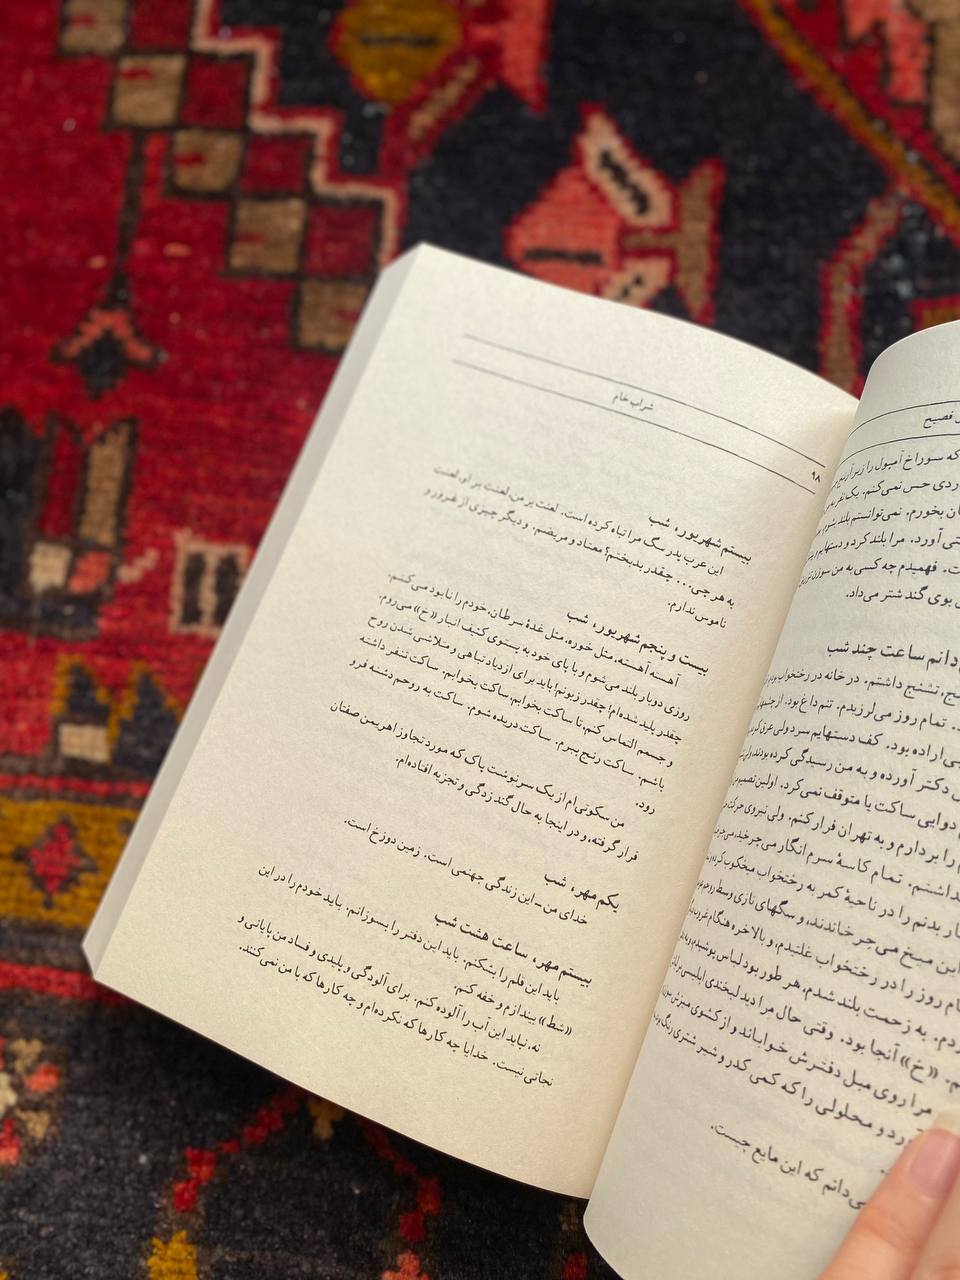 شراب خام
۹۸
بیستم شهریور، شب
این عرب پدرسگ مرا تباه کرده است. لعنت بر من، لعنت بر او، لعنت
به هر چی... چقدر بدبختم؟ معتاد و مریضم. و دیگر چیزی از غرور و
ناموس ندارم.
بیست و پنجم شهریور، شب
آهسته آهسته، مثل خوره، مثل غدهٔ سرطان، خودم را نابود می‌کنم.
روزی دو بار بلند می‌شوم و با پای خود به پستوی کثیف انبار «خ» می‌روم.
چقدر پلید شده‌ام! چقدر زبونم! باید برای ازدیاد تباهی و متلاشی شدن روح
و جسمم التماس کنم، تا ساکت بخوابم، ساکت بخوابم. ساکت تنفر داشته
باشم. ساکت رنج ببرم. ساکت دریده شوم. ساکت به روحم دشنه فرو
رود.
من سکوتی‌ام از یک سرنوشت پاک که مورد تجاوز اهریمن صفتان
قرار گرفته، و در اینجا به حال گندزدگی و تجزیه افتاده‌ام.
یکم مهر، شب
خدای من – این زندگی جهنمی است. زمین دوزخ است.
بیستم مهر، ساعت هشت شب
باید این قلم را بشکنم. باید این دفتر را بسوزانم. باید خودم را در این
«شط» بیندازم و خفه کنم.
نه، نباید این آب را آلوده کنم. برای آلودگی و پلیدی و فساد من پایانی و
نجاتی نیست. خدایا چه کارها که نکرده‌ام و چه کارها که با من نمی‌کنند.
فصیح
که سوراخ آمپول را زیر آرنج
دردی حس نمی‌کنم. یک نفر
بخورم. نمی‌توانستم بلند شوم
آورد. مرا بلند کرد و دستهایم
فهمیدم چه کسی به من سوزن
بوی گند شتر می‌داد.
دانم ساعت چند شب
تشنج داشتم. در خانه در رختخواب بودم
تمام روز می‌لرزیدم. تنم داغ بود. از چشمهایم
اراده بود. کف دستهایم سرد ولی عرق
دکتر آورده و به من رسیدگی کرده بودند، ولی
دوایی ساکت یا متوقف نمی‌کرد. اولین تصمیم
را بردارم و به تهران فرار کنم. ولی نیروی حرکت
نداشتم. تمام کاسهٔ سرم انگار می‌چرخید،
بدنم را در ناحیهٔ کمر به رختخواب میخکوب کرده
این میخ می‌چرخاندند، و سگهای تازی وسط روحم
روز را در رختخواب غلتیدم، و بالاخره هنگام غروب
به زحمت بلند شدم، هر طور بود لباس پوشیدم و به
«خ» آنجا بود. وقتی حال مرا دید لبخندی ابلیسی بر
مرا روی مبل دفترش خواباند و از کشوی میزش
آورد و محلولی را که کمی کدر و شیر شتری رنگ
می‌دانم که این مایع چیست.